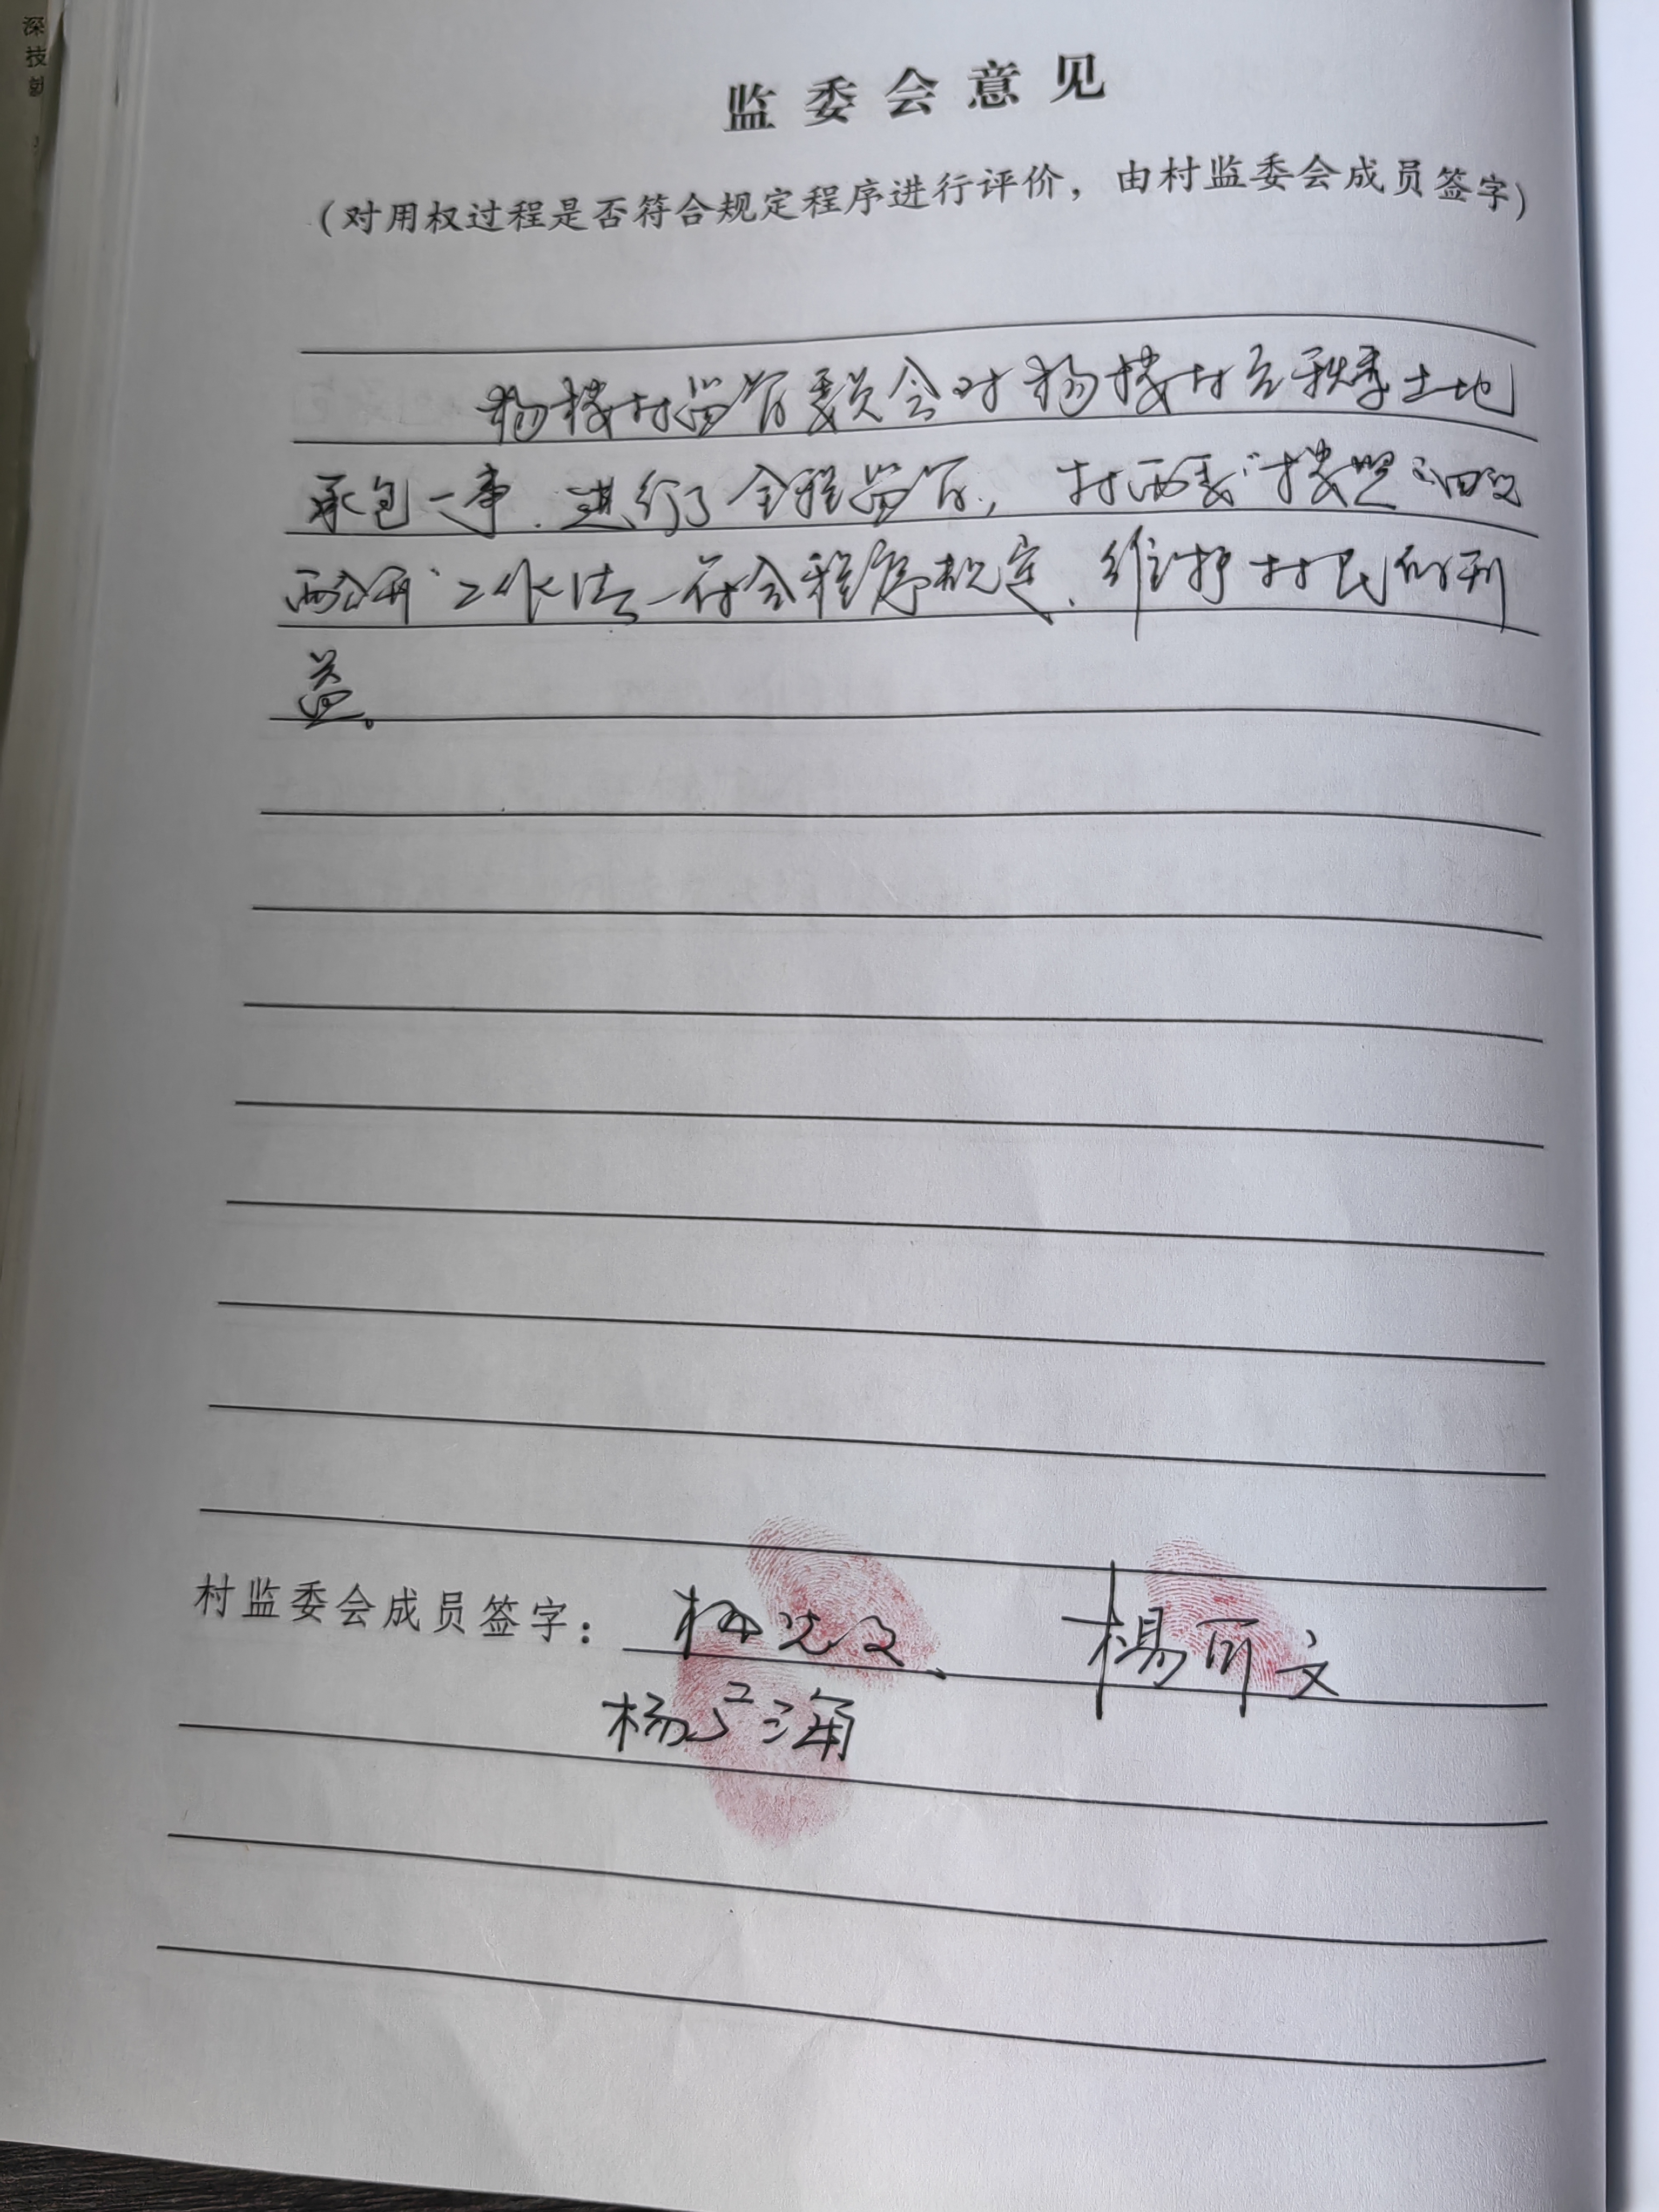 深技
监委会意见
(对用权过程是否符合规定程序进行评价，由村监委会成员签字)
杨楼村监督委员会对杨楼村在秋季土地
承包一事.进行了全程监督，村两委"按照四议
两公开"工作法一符合程序规定.维护村民的利
益。
村监委会成员签字：
杨 文
杨